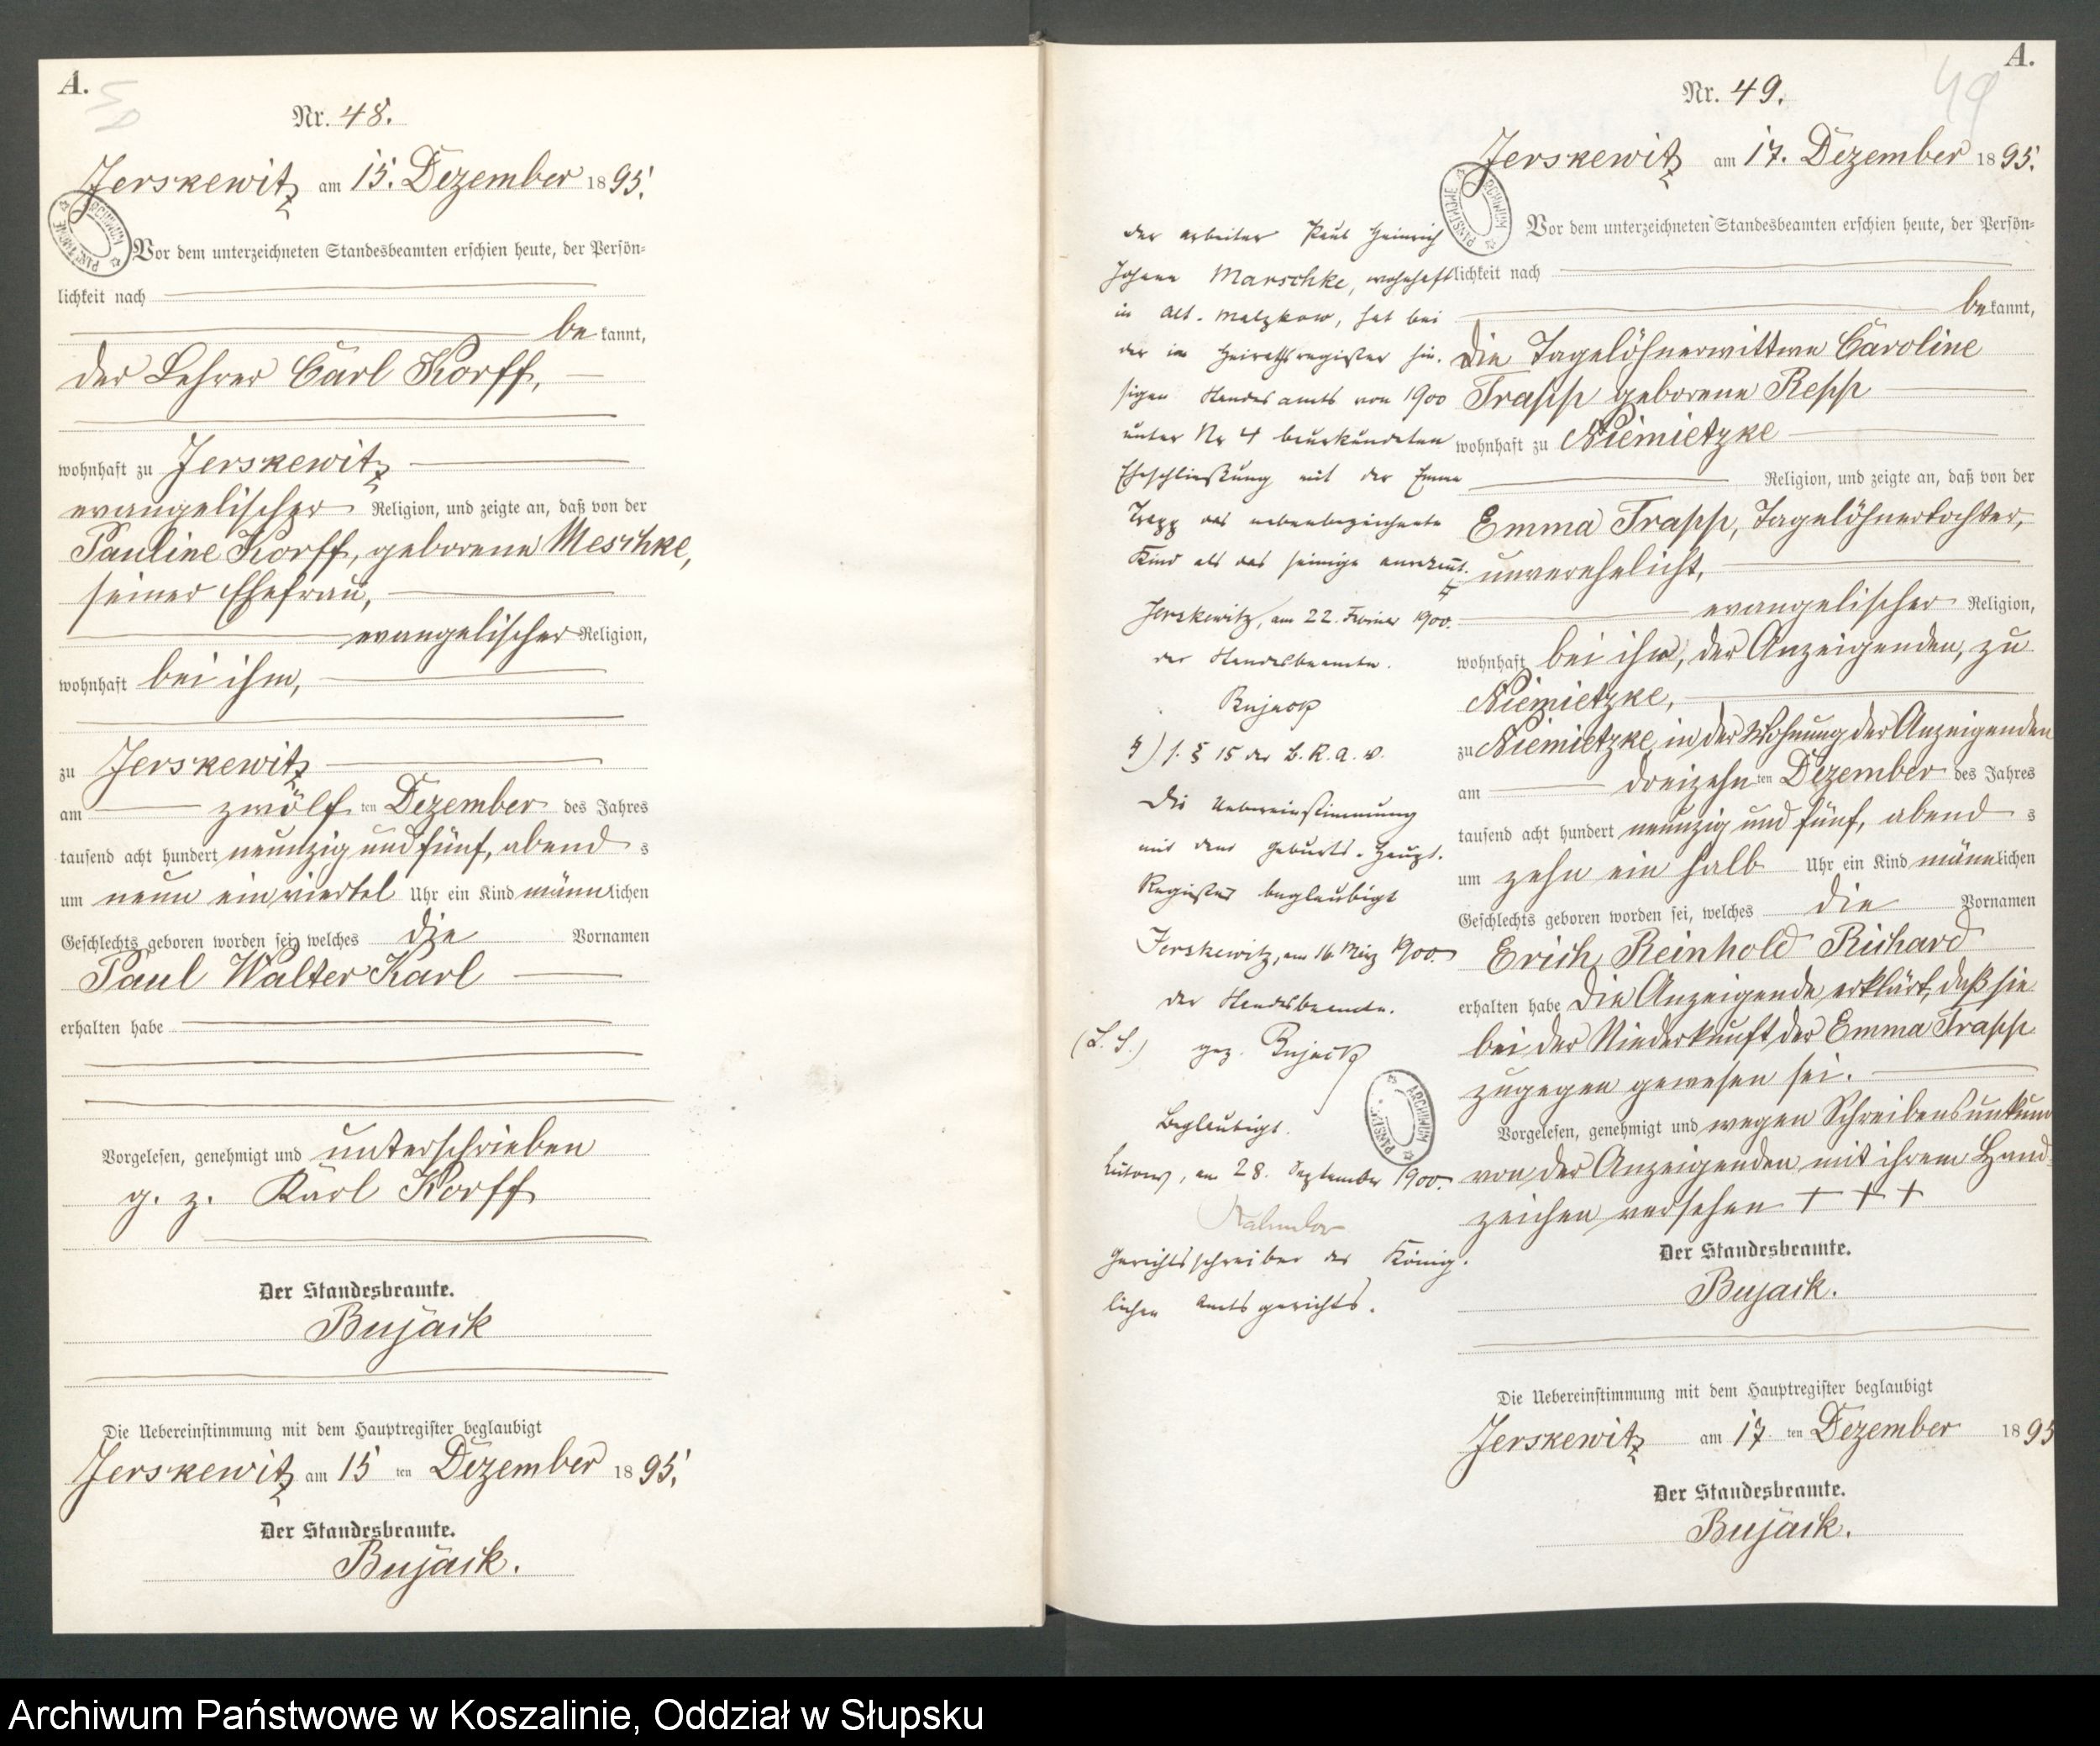 A.
50
Nr. 48.
Jerskewitz am 15. Dezember 1895.
Vor dem unterzeichneten Standesbeamten erschien heute, der Persön-
lichkeit nach
bekannt,
der Lehrer Carl Korff,
wohnhaft zu Jerskewitz
evangelischer Religion, und zeigte an, daß von der
Pauline Korff, geborene Meschke,
seiner Ehefrau,
evangelischer Religion,
wohnhaft bei ihm,
zu Jerskewitz
am zwölften Dezember des Jahres
tausend acht hundert neunzig und fünf, abends
um neun ein viertel Uhr ein Kind männlichen
Geschlechts geboren worden sei, welches die Vornamen
Paul Walter Karl
erhalten habe
Vorgelesen, genehmigt und unterschrieben
g. z. Karl Korff
Der Standesbeamte.
Bujack
Die Uebereinstimmung mit dem Hauptregister beglaubigt
Jerskewitz am 15 ten Dezember 1895.
Der Standesbeamte.
Bujack.
A.
49
Nr. 49.
Jerskewitz am 17. Dezember 1895.
Vor dem unterzeichneten Standesbeamten erschien heute, der Persön-
lichkeit nach
bekannt,
die Tagelöhnerwittwe Caroline
Trapp geborene Repp
wohnhaft zu Niemietzke
Religion, und zeigte an, daß von der
Emma Trapp, Tagelöhnertochter,
unverehelicht,
evangelischer Religion,
wohnhaft bei ihr, der Anzeigenden, zu
Niemietzke,
zu Niemietzke in der Wohnung der Anzeigenden
am dreizehnten Dezember des Jahres
tausend acht hundert neunzig und fünf, abends
um zehn ein halb Uhr ein Kind männlichen
Geschlechts geboren worden sei, welches die Vornamen
Erich Reinhold Richard
erhalten habe Die Anzeigende erklärt, daß sie
bei der Niederkunft der Emma Trapp
zugegen gewesen sei.
Vorgelesen, genehmigt und wegen Schreibensunkun
von der Anzeigenden mit ihrem Hand-
zeichen versehen + + +
Der Standesbeamte.
Bujack.
Die Uebereinstimmung mit dem Hauptregister beglaubigt
Jerskewitz am 17 ten Dezember 1895
Der Standesbeamte.
Bujack.
Der Arbeiter Paul Heinrich
Johann Marschke, wohnhaft
in Alt-Malzkow, hat bei
der im Heirathsregister hie-
sigen Standesamts von 1900
unter Nr 4 beurkundeten
Eheschließung mit der Emma
Trapp das nebenbezeichnete
Kind als das seinige anerkannt.
Jerskewitz, am 22. Februar 1900.
Der Standesbeamte.
Bujack
§ 15 der
Die Uebereinstimmung
mit dem Geburts-Haupt-
Register beglaubigt
Jerskewitz, am 16 März 1900.
Der Standesbeamte.
(L. S.) gez. Bujack
Beglaubigt.
am 28. September 1900.
Gerichtsschreiber des König-
lichen Amtsgerichts.
ARCHIWUM PAŃSTWOWE
Archiwum Państwowe w Koszalinie, Oddział w Słupsku